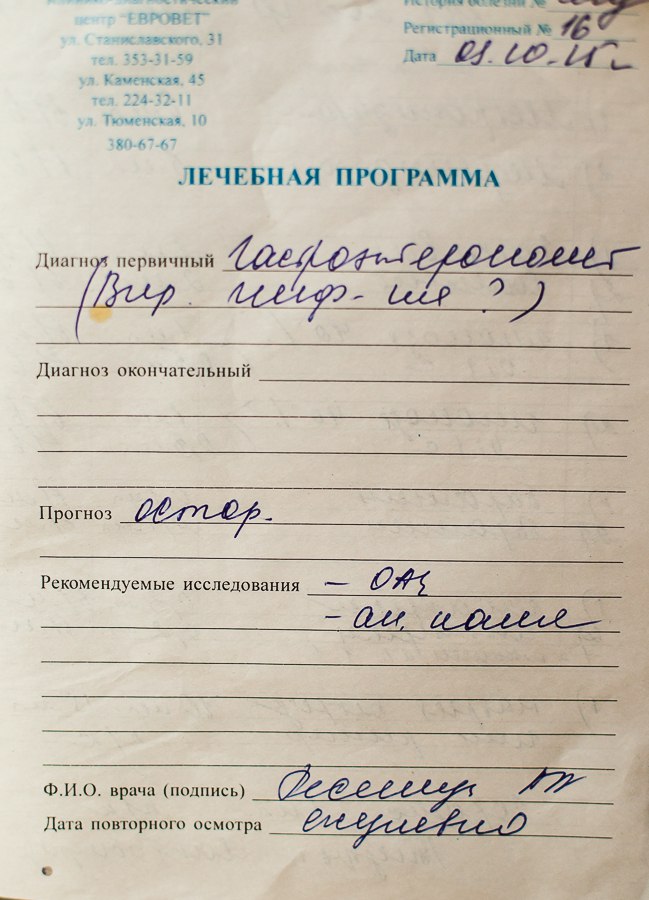 клинико-диагностический
центр "ЕВРОВЕТ"
ул. Станиславского, 31
тел. 353-31-59
ул. Каменская, 45
тел. 224-32-11
ул. Тюменская, 10
380-67-67
История болезни №
Регистрационный № 16
Дата 03.10.15г
ЛЕЧЕБНАЯ ПРОГРАММА
Диагноз первичный Гастроэнтероколит
(Вир. инф-ия ?)
Диагноз окончательный
Прогноз остор.
Рекомендуемые исследования - ОАК
- ан. кала
Ф.И.О. врача (подпись)
Дата повторного осмотра ежедневно